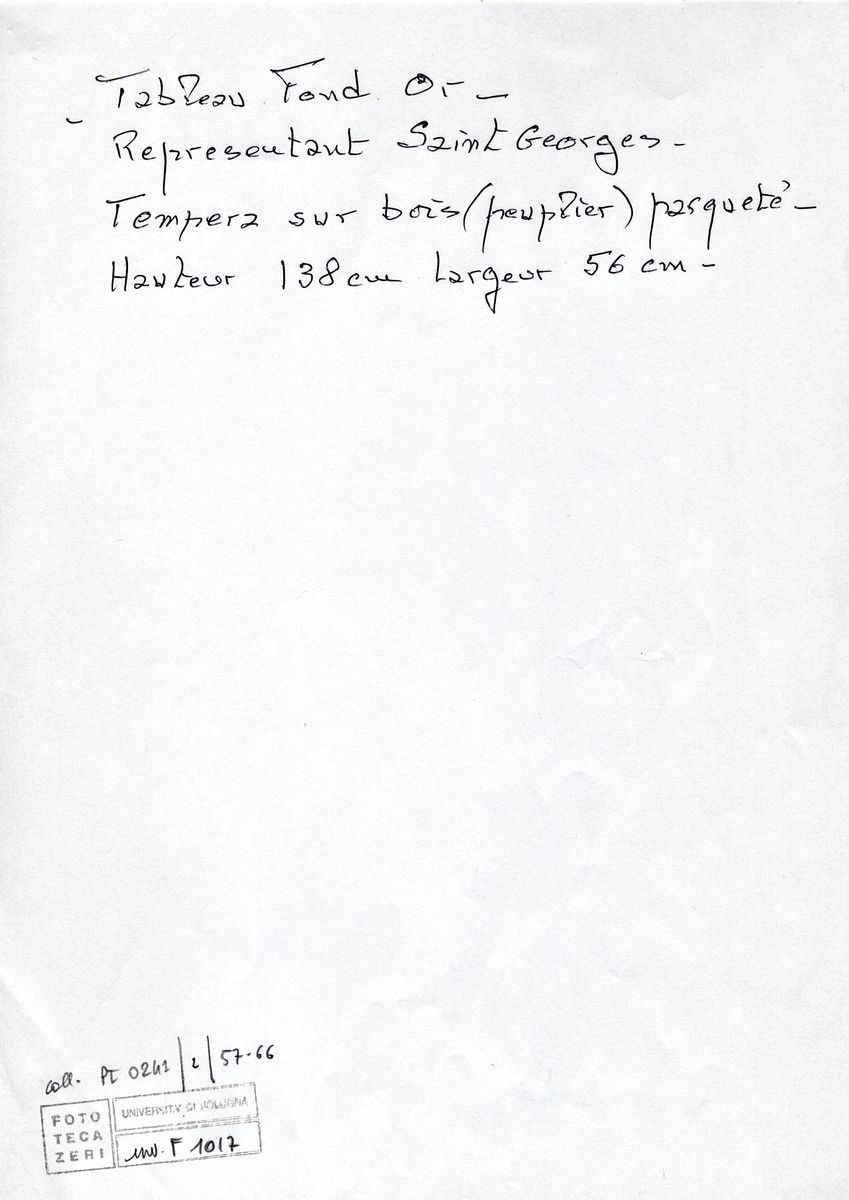 - Tableau Fond Or -
Representant Saint Georges -
Tempera sur bois (peuplier) parqueté -
Hauteur 138 cm Largeur 56 cm -
coll. PI 0241 / 2 / 57-66
FOTO
TECA
ZERI
UNIVERSITY OF BOLOGNA
inv. F 1017